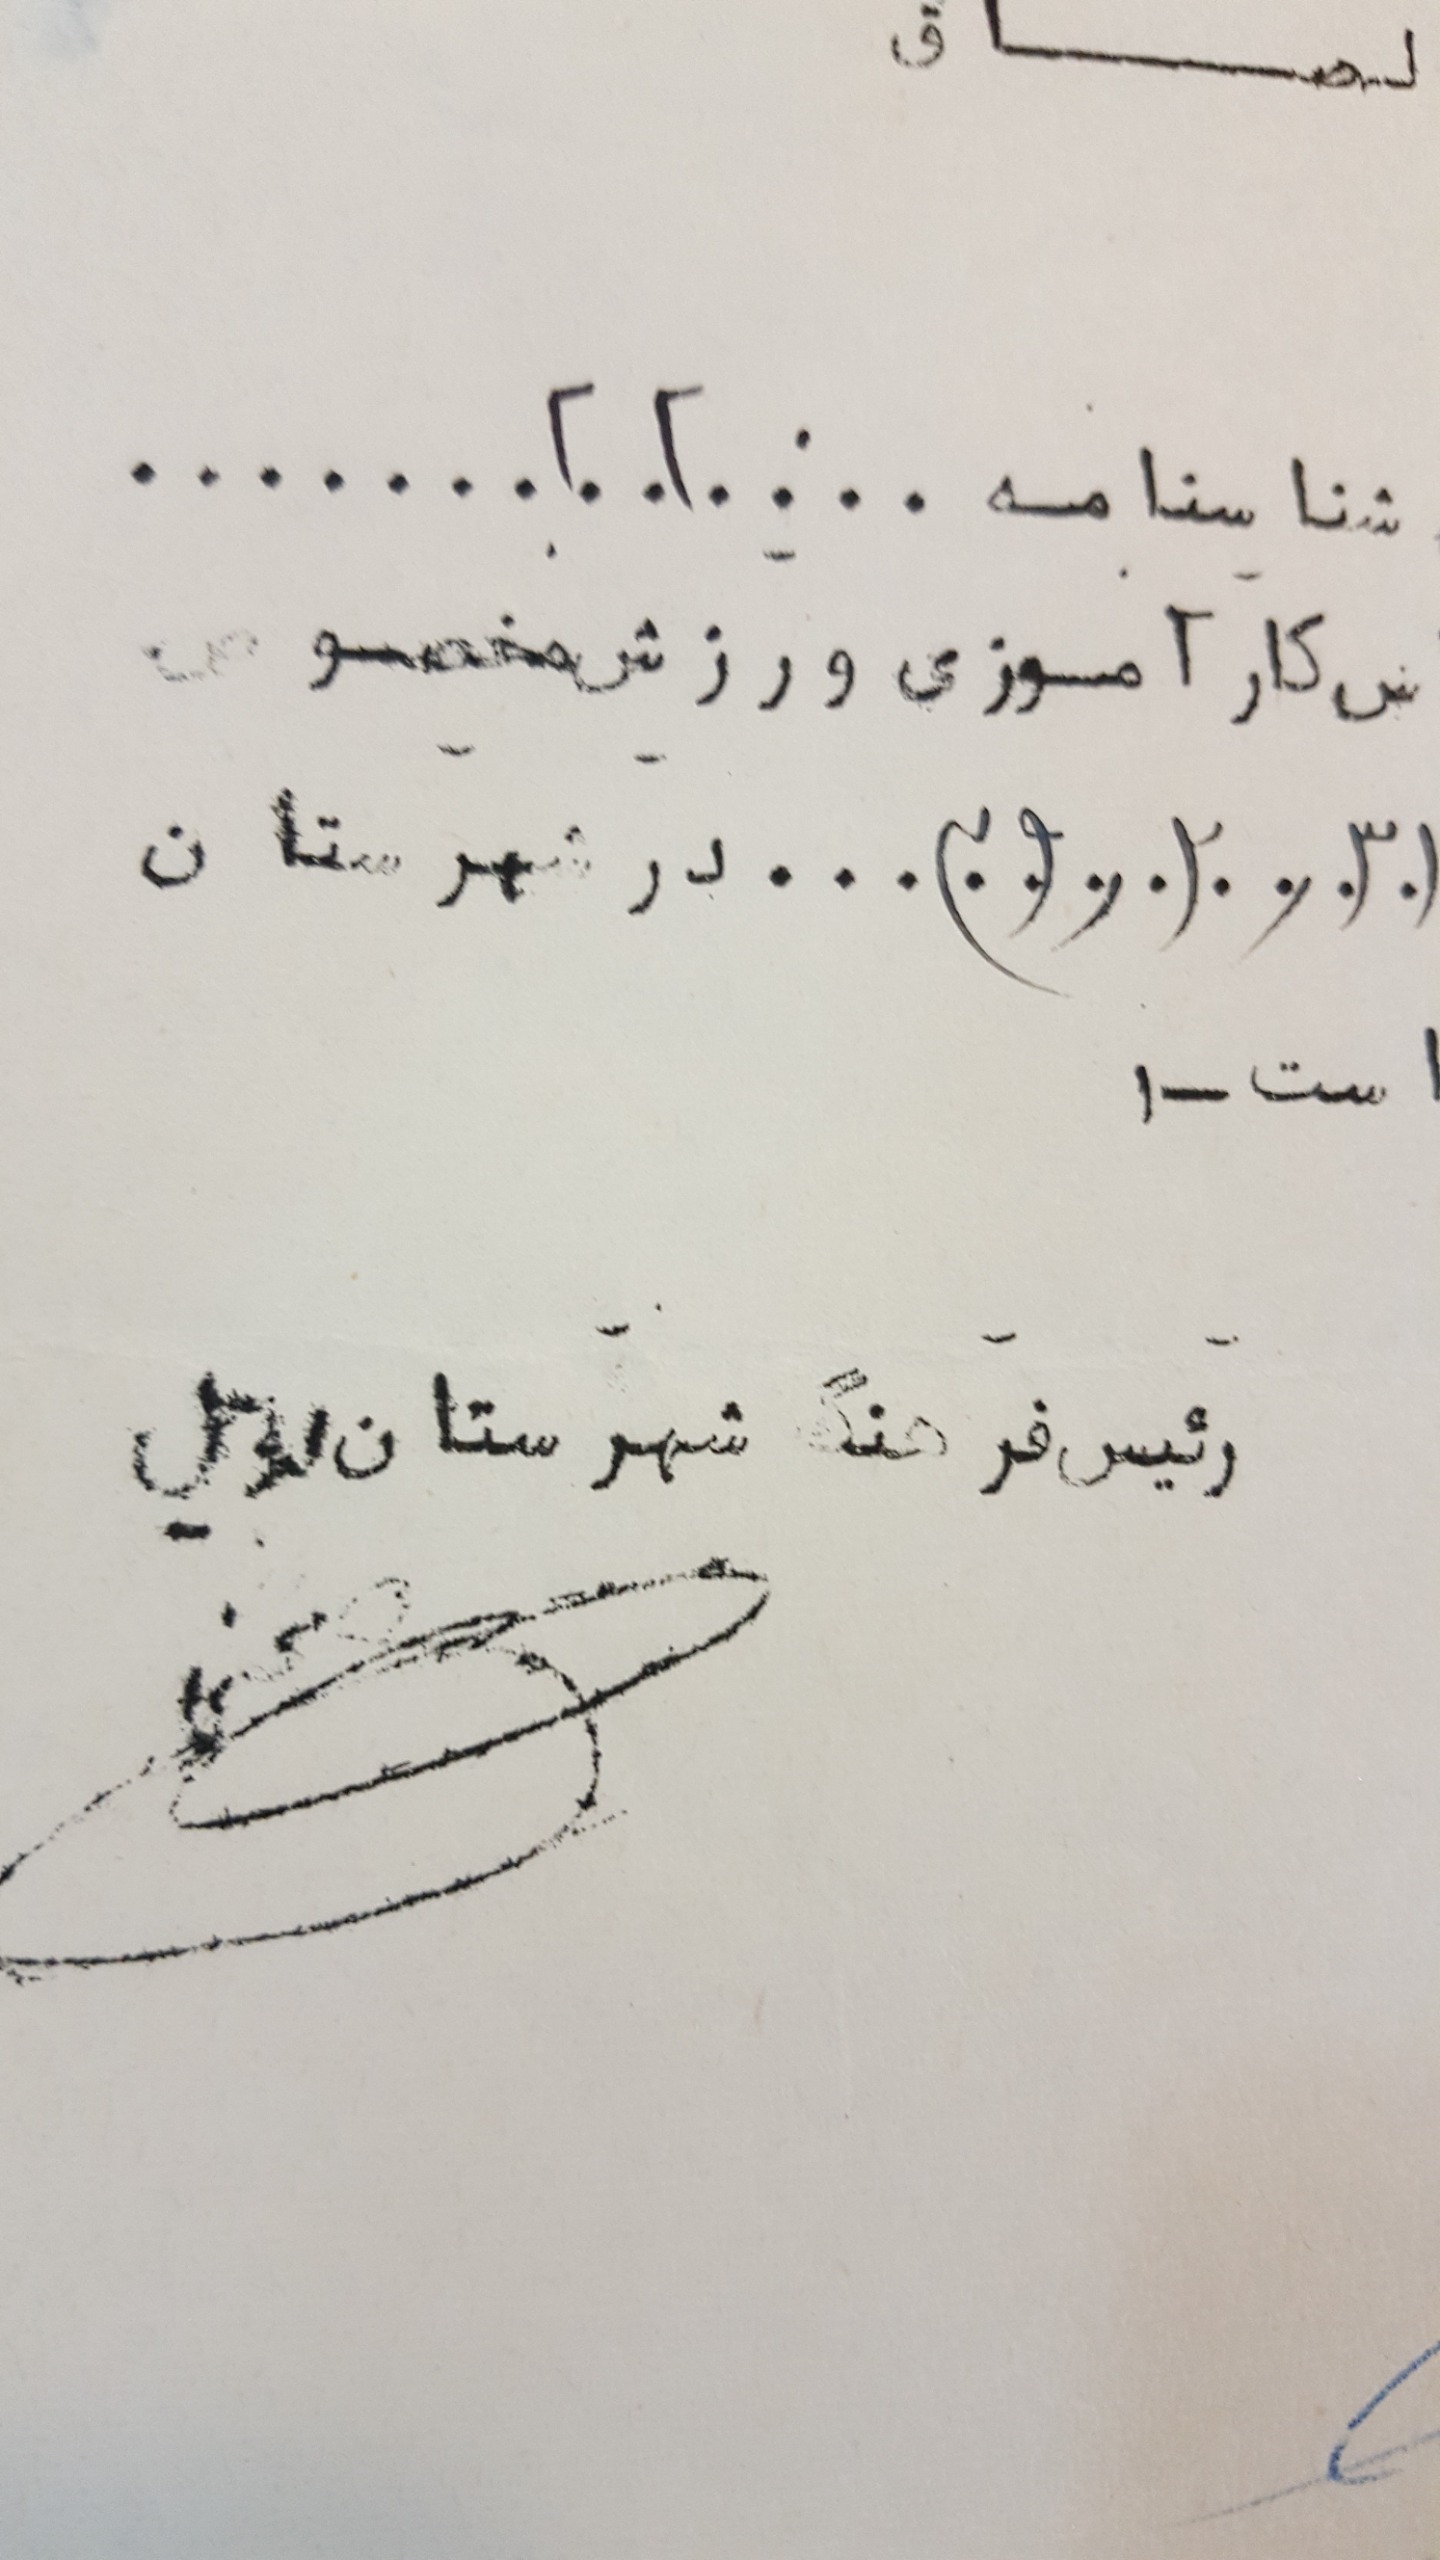 لصاق
شناسنامه ........۲۲۰...
ش کارآموزی ورزش مخصوص
۱۳/۲/۲۹... در شهرستان
است -۱
رئیس فرهنگ شهرستان اردبیل